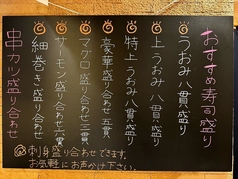 おすすめ寿司盛り
うおみ八貫盛り
上うおみ八貫盛り
特上うおみ八貫盛り
豪華盛り合わせ五貫
マグロ盛り合わせ三貫
サーモン盛り合わせ六貫
細巻き盛り合わせ
串カツ盛り合わせ
刺身盛り合わせできます。
お気軽にお声かけ下さい。